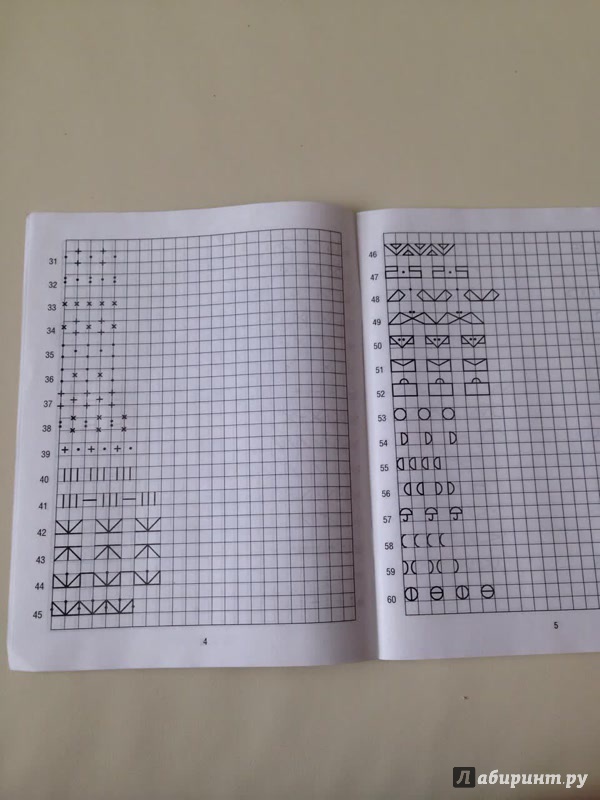 31
32
33
34
35
36
37
38
39
40
41
42
43
44
45
4
46
47
48
49
50
51
52
53
54
55
56
57
58
59
60
5
Лабиринт.ру